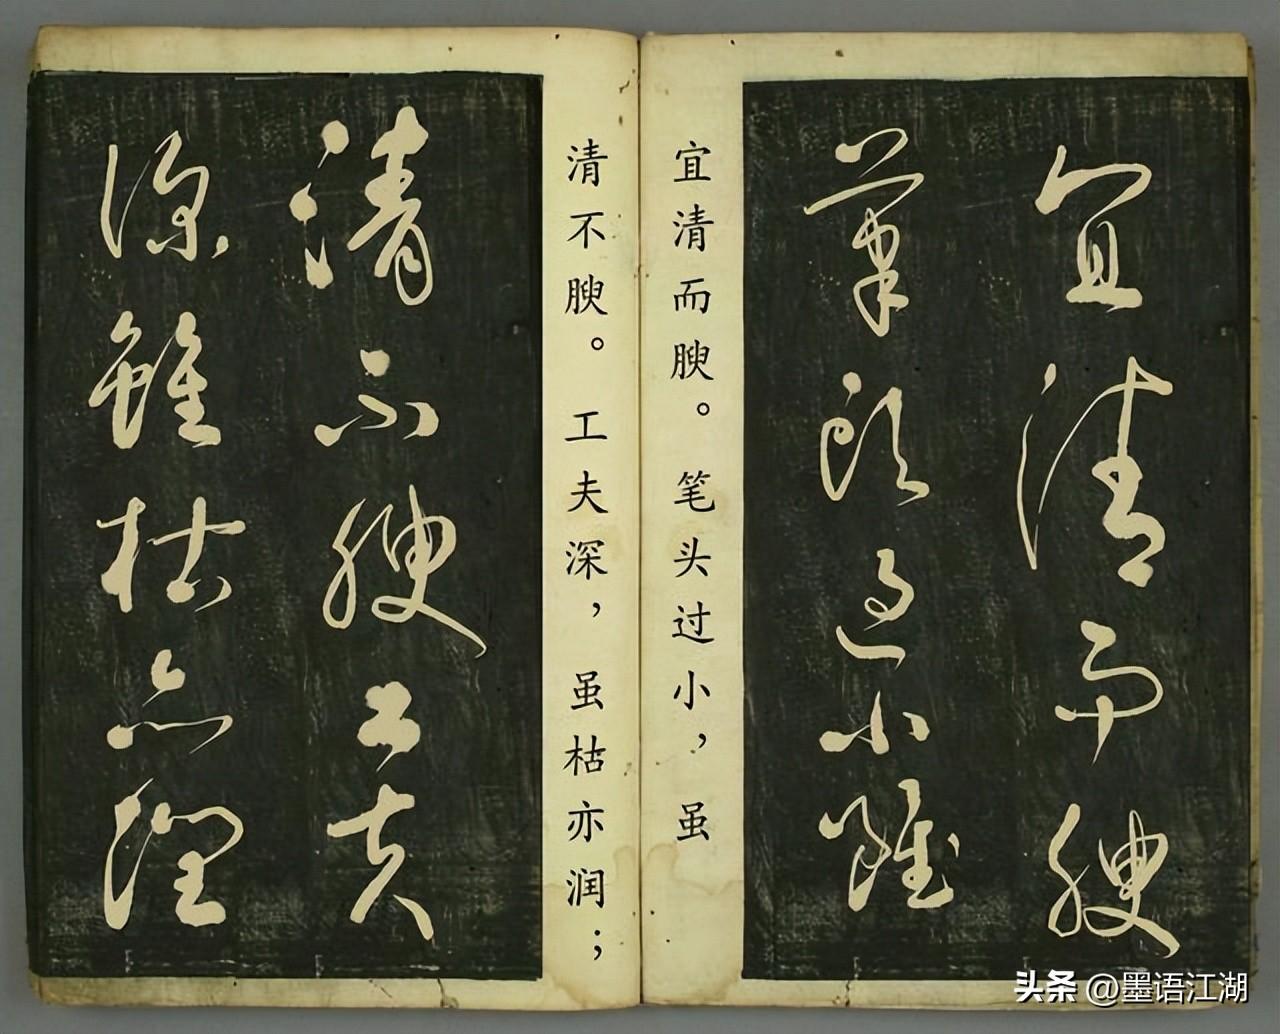 宜清而腴
筆頭過小雖
宜清而腴。笔头过小，虽
清不腴。工夫深，虽枯亦润；
清不腴工夫
深雖枯亦潤
头条 @墨语江湖